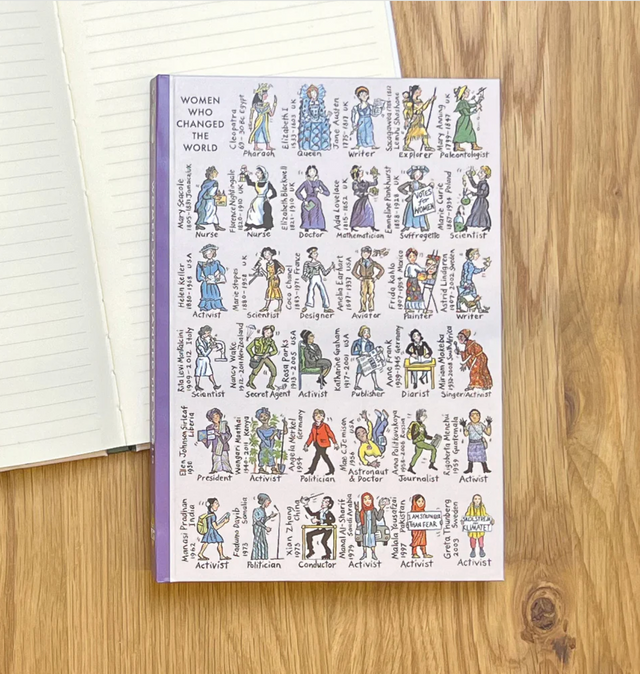 WOMEN
WHO
CHANGED
THE
WORLD
Cleopatra
69-30 BC Egypt
Pharaoh
Elizabeth I
1533-1603 UK
Queen
Jane Austen
1775-1817 UK
Writer
Explorer
Mary Anning
1799-1847 UK
Paleontologist
Mary Seacole
1805-1881 Jamaica/UK
Nurse
Florence Nightingale
1820-1910 UK
Nurse
Elizabeth Blackwell
1821-1910 UK
Doctor
Ada Lovelace
1815-1852 UK
Mathematician
Emmeline Pankhurst
1858-1928 UK
VOTES
for
WOMEN
Suffragette
Marie Curie
1867-1934 Poland
Scientist
Helen Keller
1880-1968 USA
Activist
Marie Stopes
1880-1958 UK
Scientist
Coco Chanel
1883-1971 France
Designer
Amelia Earhart
1897-1937 USA
Aviator
Frida Kahlo
1907-1954 Mexico
Painter
Astrid Lindgren
1907-2002 Sweden
Writer
Rita Levi Montalcini
1909-2012 Italy
Scientist
Nancy Wake
1912-2011 New Zealand
Secret Agent
Rosa Parks
1913-2005 USA
Activist
Katharine Graham
1917-2001 USA
Publisher
Anne Frank
1929-1945 Germany
Diarist
Miriam Makeba
1932-2008 South Africa
Singer/Activist
Ellen Johnson Sirleaf
1938 Liberia
President
Wangari Maathai
1940-2011 Kenya
Activist
Angela Merkel
1954 Germany
Politician
Mae C Jemison
1956 USA
Astronaut
& Doctor
Anna Politkovskaya
1958-2006 Russia
Journalist
Rigoberta Menchú
1959 Guatemala
Activist
Manasi Pradhan
1962 India
Activist
Fadumo Dayib
1973 Somalia
Politician
Xian Zhang
1973 China
Conductor
Manal Al-Sharif
1979 Saudi Arabia
Activist
Malala Yousafzai
1997 Pakistan
I AM STRONGER
THAN FEAR
Activist
Greta Thunberg
2003 Sweden
SKOLSTREJK
KLIMATET
Activist